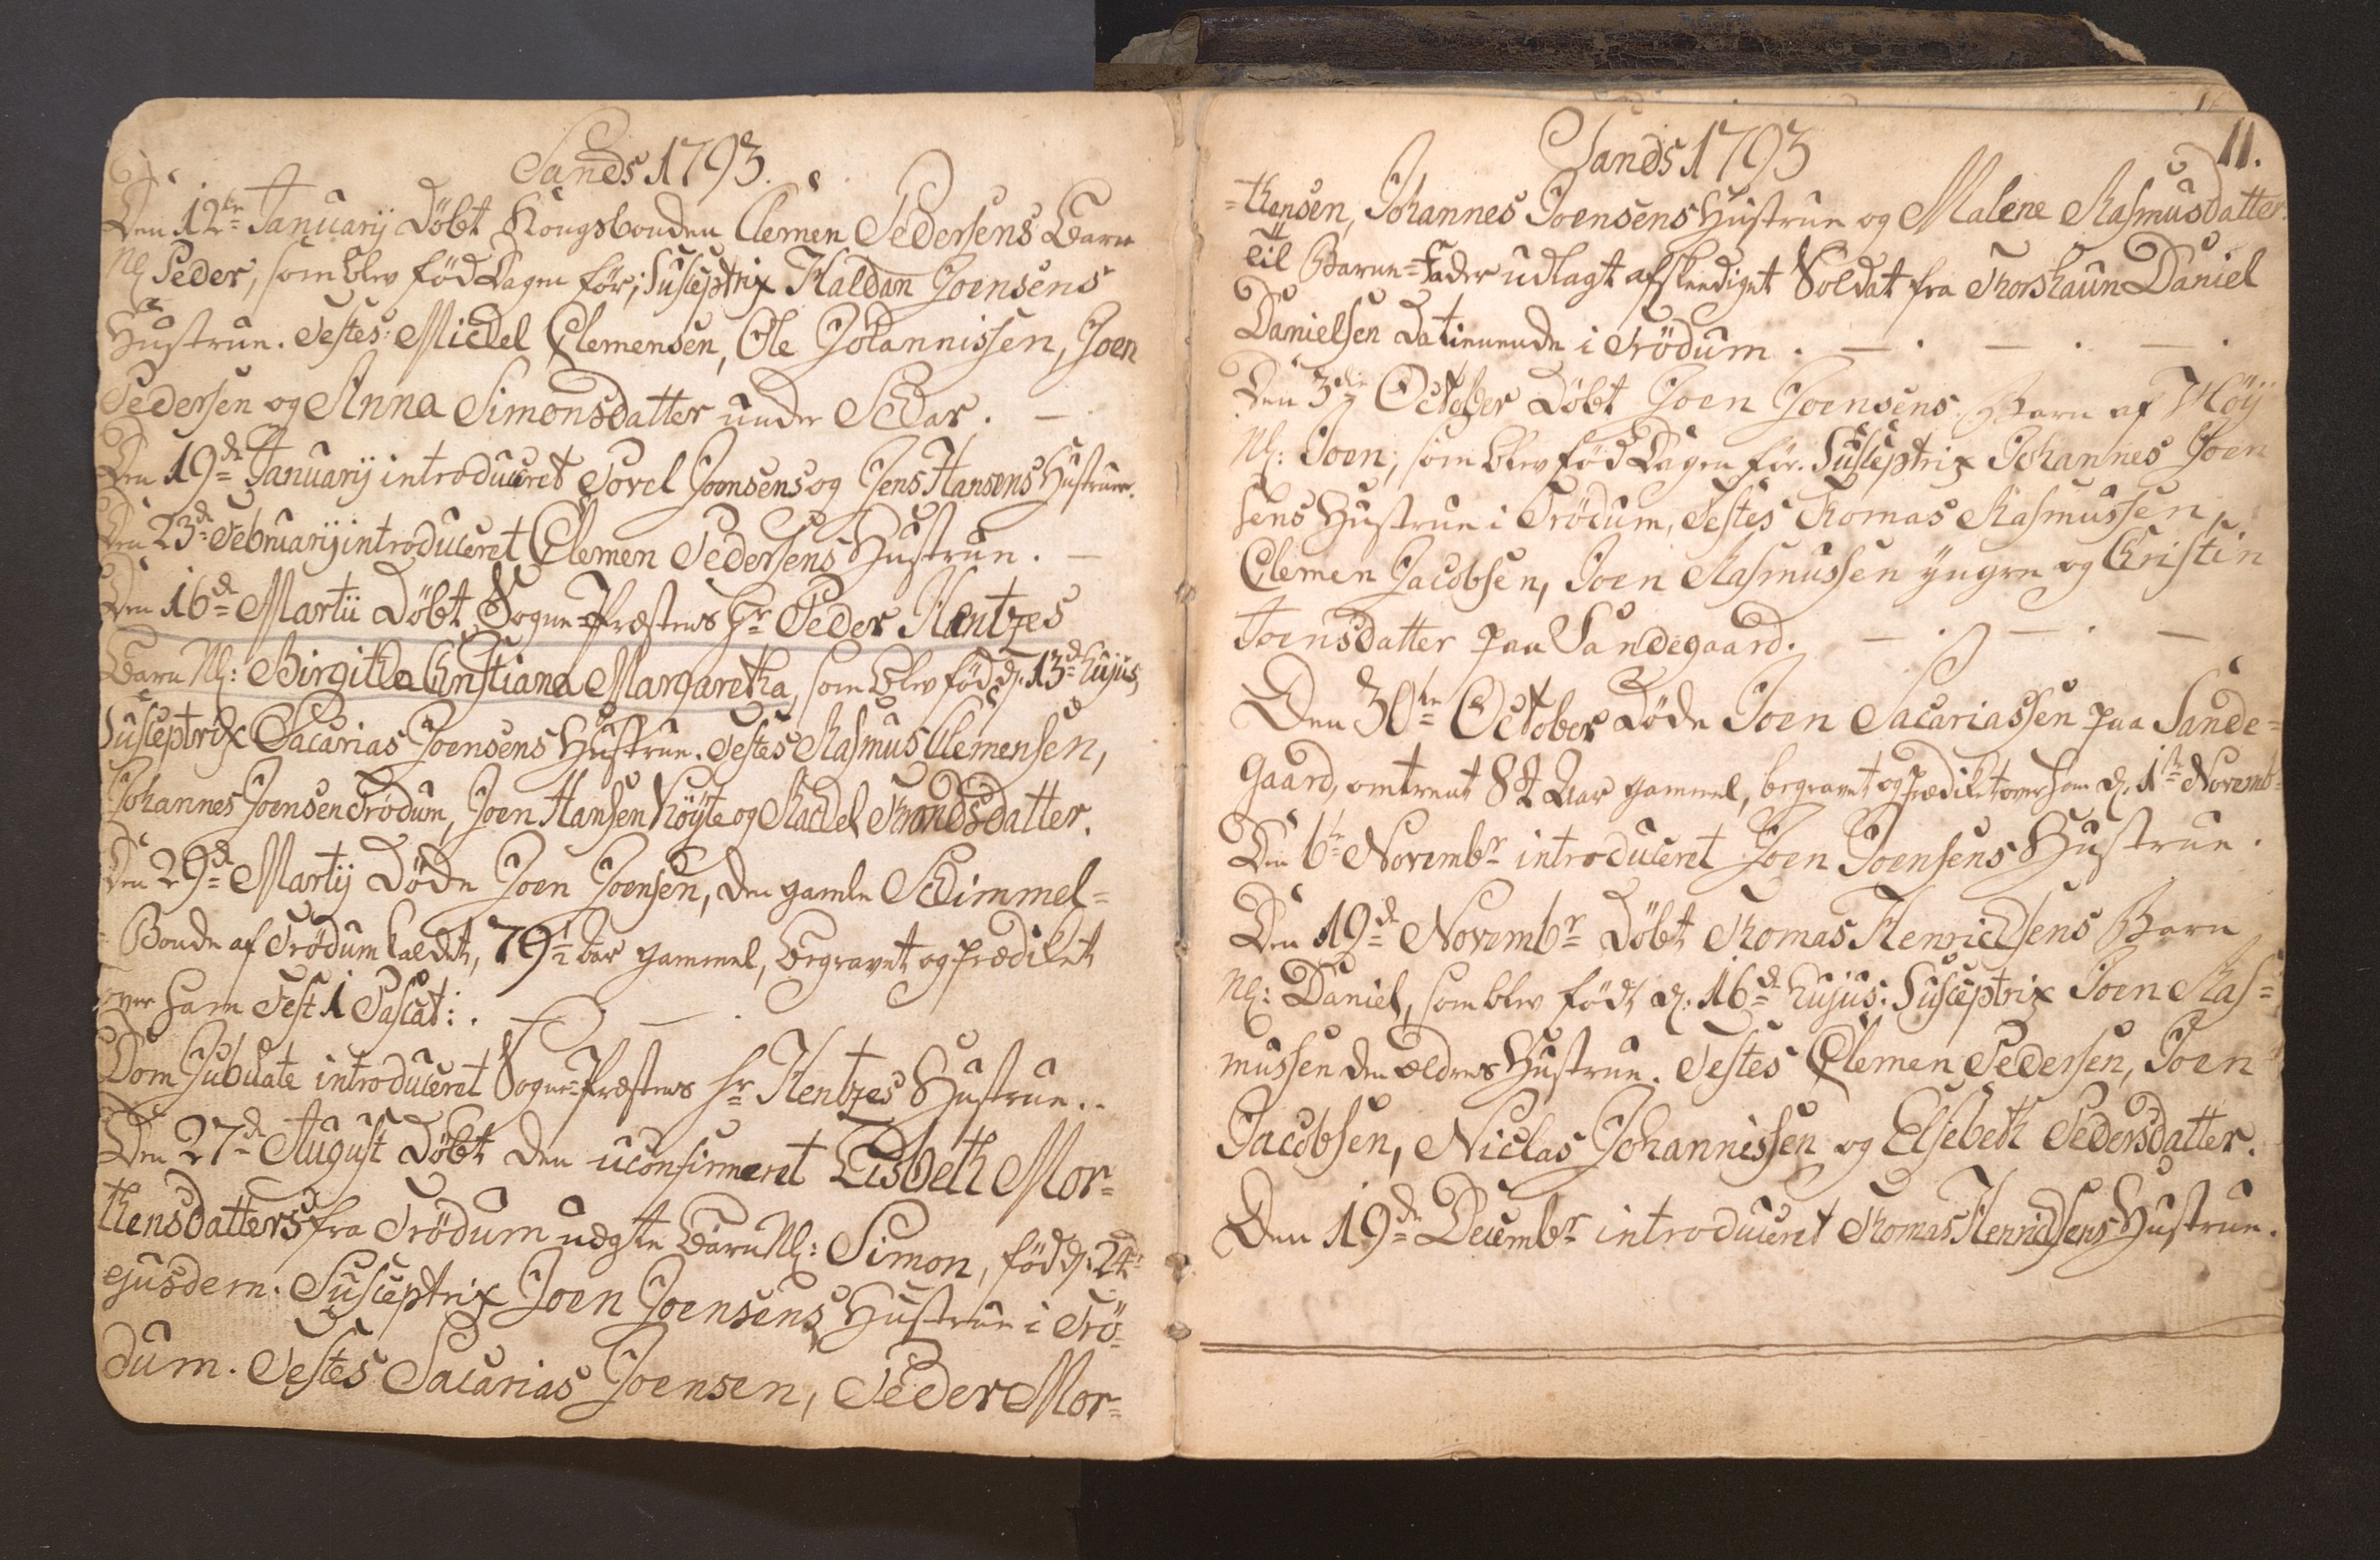 Sands 1793.
Den 12te Januarij Döbt Kongsbonden Clemen Pedersens Barn
Nl Peder, som blev föd Dagen för; Susceptrix Haldan Joensens
Hustrue. Testes: Mickel Clemensen, Ole Johannissen, Joen
Pedersen og Anna Simonsdatter under Skar. —
Den 19de Januarij introduceret Povel Joensens og Jens Hansens Hustruer.
Den 23de Februarij introduceret Clemen Pedersens Hustrue. —
Den 16de Martii Döbt Sogne-Præstens Hr Peder Hentzes
Barn Nl: Birgitha Christiana Margaretha, som blev föd d. 13de hujus,
Susceptrix Sacarias Joensens Hustrue. Testes Rasmus Clemensen,
Johannes Joensen Trödum, Joen Hansen Köyte og Rachel Trondsdatter.
Den 29de Martij Döde Joen Joensen, den gamle Skimmel=
Bonde af Trödum kaldet, 79½ Aar gammel, Begravet og prædiket
over ham Fest 1 Pascat: . — —.
Dom Jubilate introduceret Sogne-Præstens Hr Hentzes Hustrue..
Den 27de August Döbt den uconfirmeret Lisbeth Mor=
thensdatters fra Trödum uægte Barn Nl: Simon, föd d. 24de
ejusdem. Susceptrix Joen Joensens Hustrue i Trö=
dum. Testes Sacarias Joensen, Peder Mor=
11.
Sands 1793
=thensen, Johannes Joensens Hustrue og Malene Rasmusdatter.
Til Barne=Fader udlagt afskeediget Soldat fra Thorshaun Daniel
Danielsen da tienende i Trödum. — . — . — .
Den 3die October Döbt Joen Joensens Barn af Möij
Nl: Joen, som blev föd Dagen för. Susceptrix Johannes Joen
sens Hustrue i Trödum, Testes Thomas Rasmussen,
Clemen Jacobsen, Joen Rasmussen yngre og Christin
Joensdatter paa Sandegaard. — . — . —
Den 30te October Döde Joen Sacariassen paa Sande=
gaard, omtrent 82 Aar gammel, begravet og Prædiket over ham d. 1te Novemb
Den 6te Novembr introduceret Joen Joensens Hustrue.
Den 19de Novembr Döbt Thomas Henrichsens Barn
Nl: Daniel, som blev födt d. 16de hujus. Susceptrix Joen Ras=
mussen den ældres Hustrue. Testes Clemen Pedersen, Joen
Jacobsen, Niclas Johannissen og Elsebeth Pedersdatter.
Den 19de Decembr introduceret Thomas Henrichsens Hustrue.